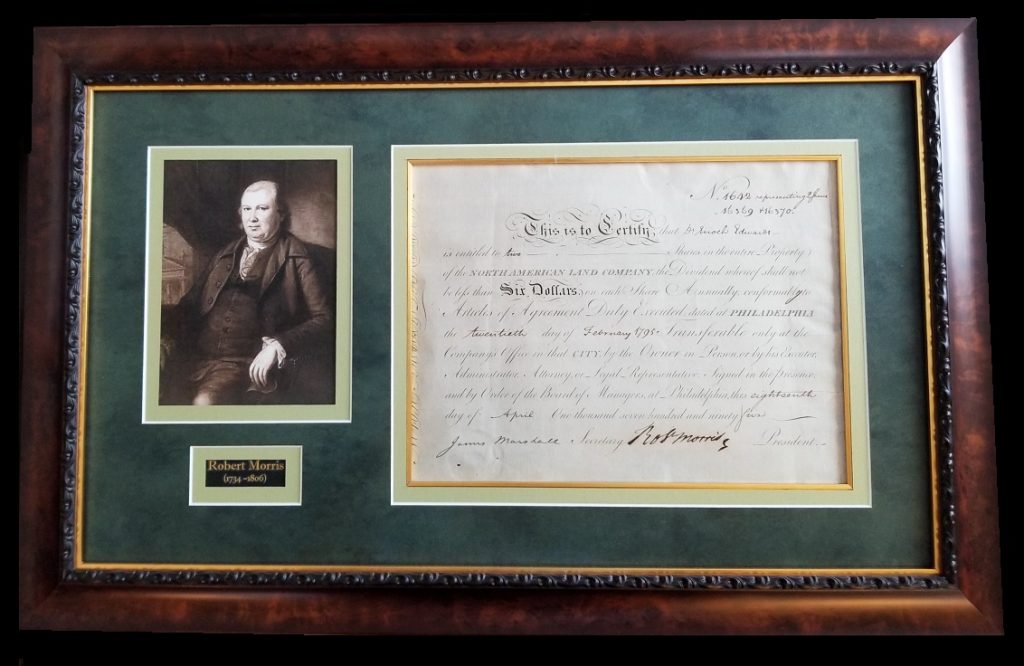 Robert Morris
(1734 -1806)
No. 1642 representing 2 Shares
16369 & 16370.
This is to Certify, that Dr. Enoch Edwards
is entitled to two Shares in the entire Property
of the NORTH AMERICAN LAND COMPANY, the Dividend whereof shall not
be less than Six Dollars on each Share Annually, conformably to
Articles of Agreement Duly Executed dated at PHILADELPHIA
the twentieth day of February 1795 Transferable only at the
Company's Office in that CITY, by the Owner in Person, or by his Executor,
Administrator, Attorney or Legal Representative. Signed in the presence
and by Order of the Board of Managers, at Philadelphia, this eighteenth
day of April One thousand seven hundred and ninety five
James Marshall Secretary Robt Morris President.